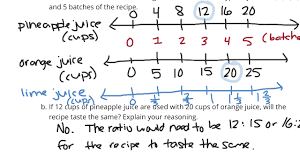 and 5 batches of the recipe.
0 4 8 12 16 20
pineapple juice
(cups)
0 1 2 3 4 5 (batche
orange juice
(cups)
0 5 10 15 20 25
lime juice
(cups) 0
b. If 12 cups of pineapple juice are used with 20 cups of orange juice, will the
recipe taste the same? Explain your reasoning.
No. The ratio would need to be 12:15 or 16:2
for the recipe to taste the same.